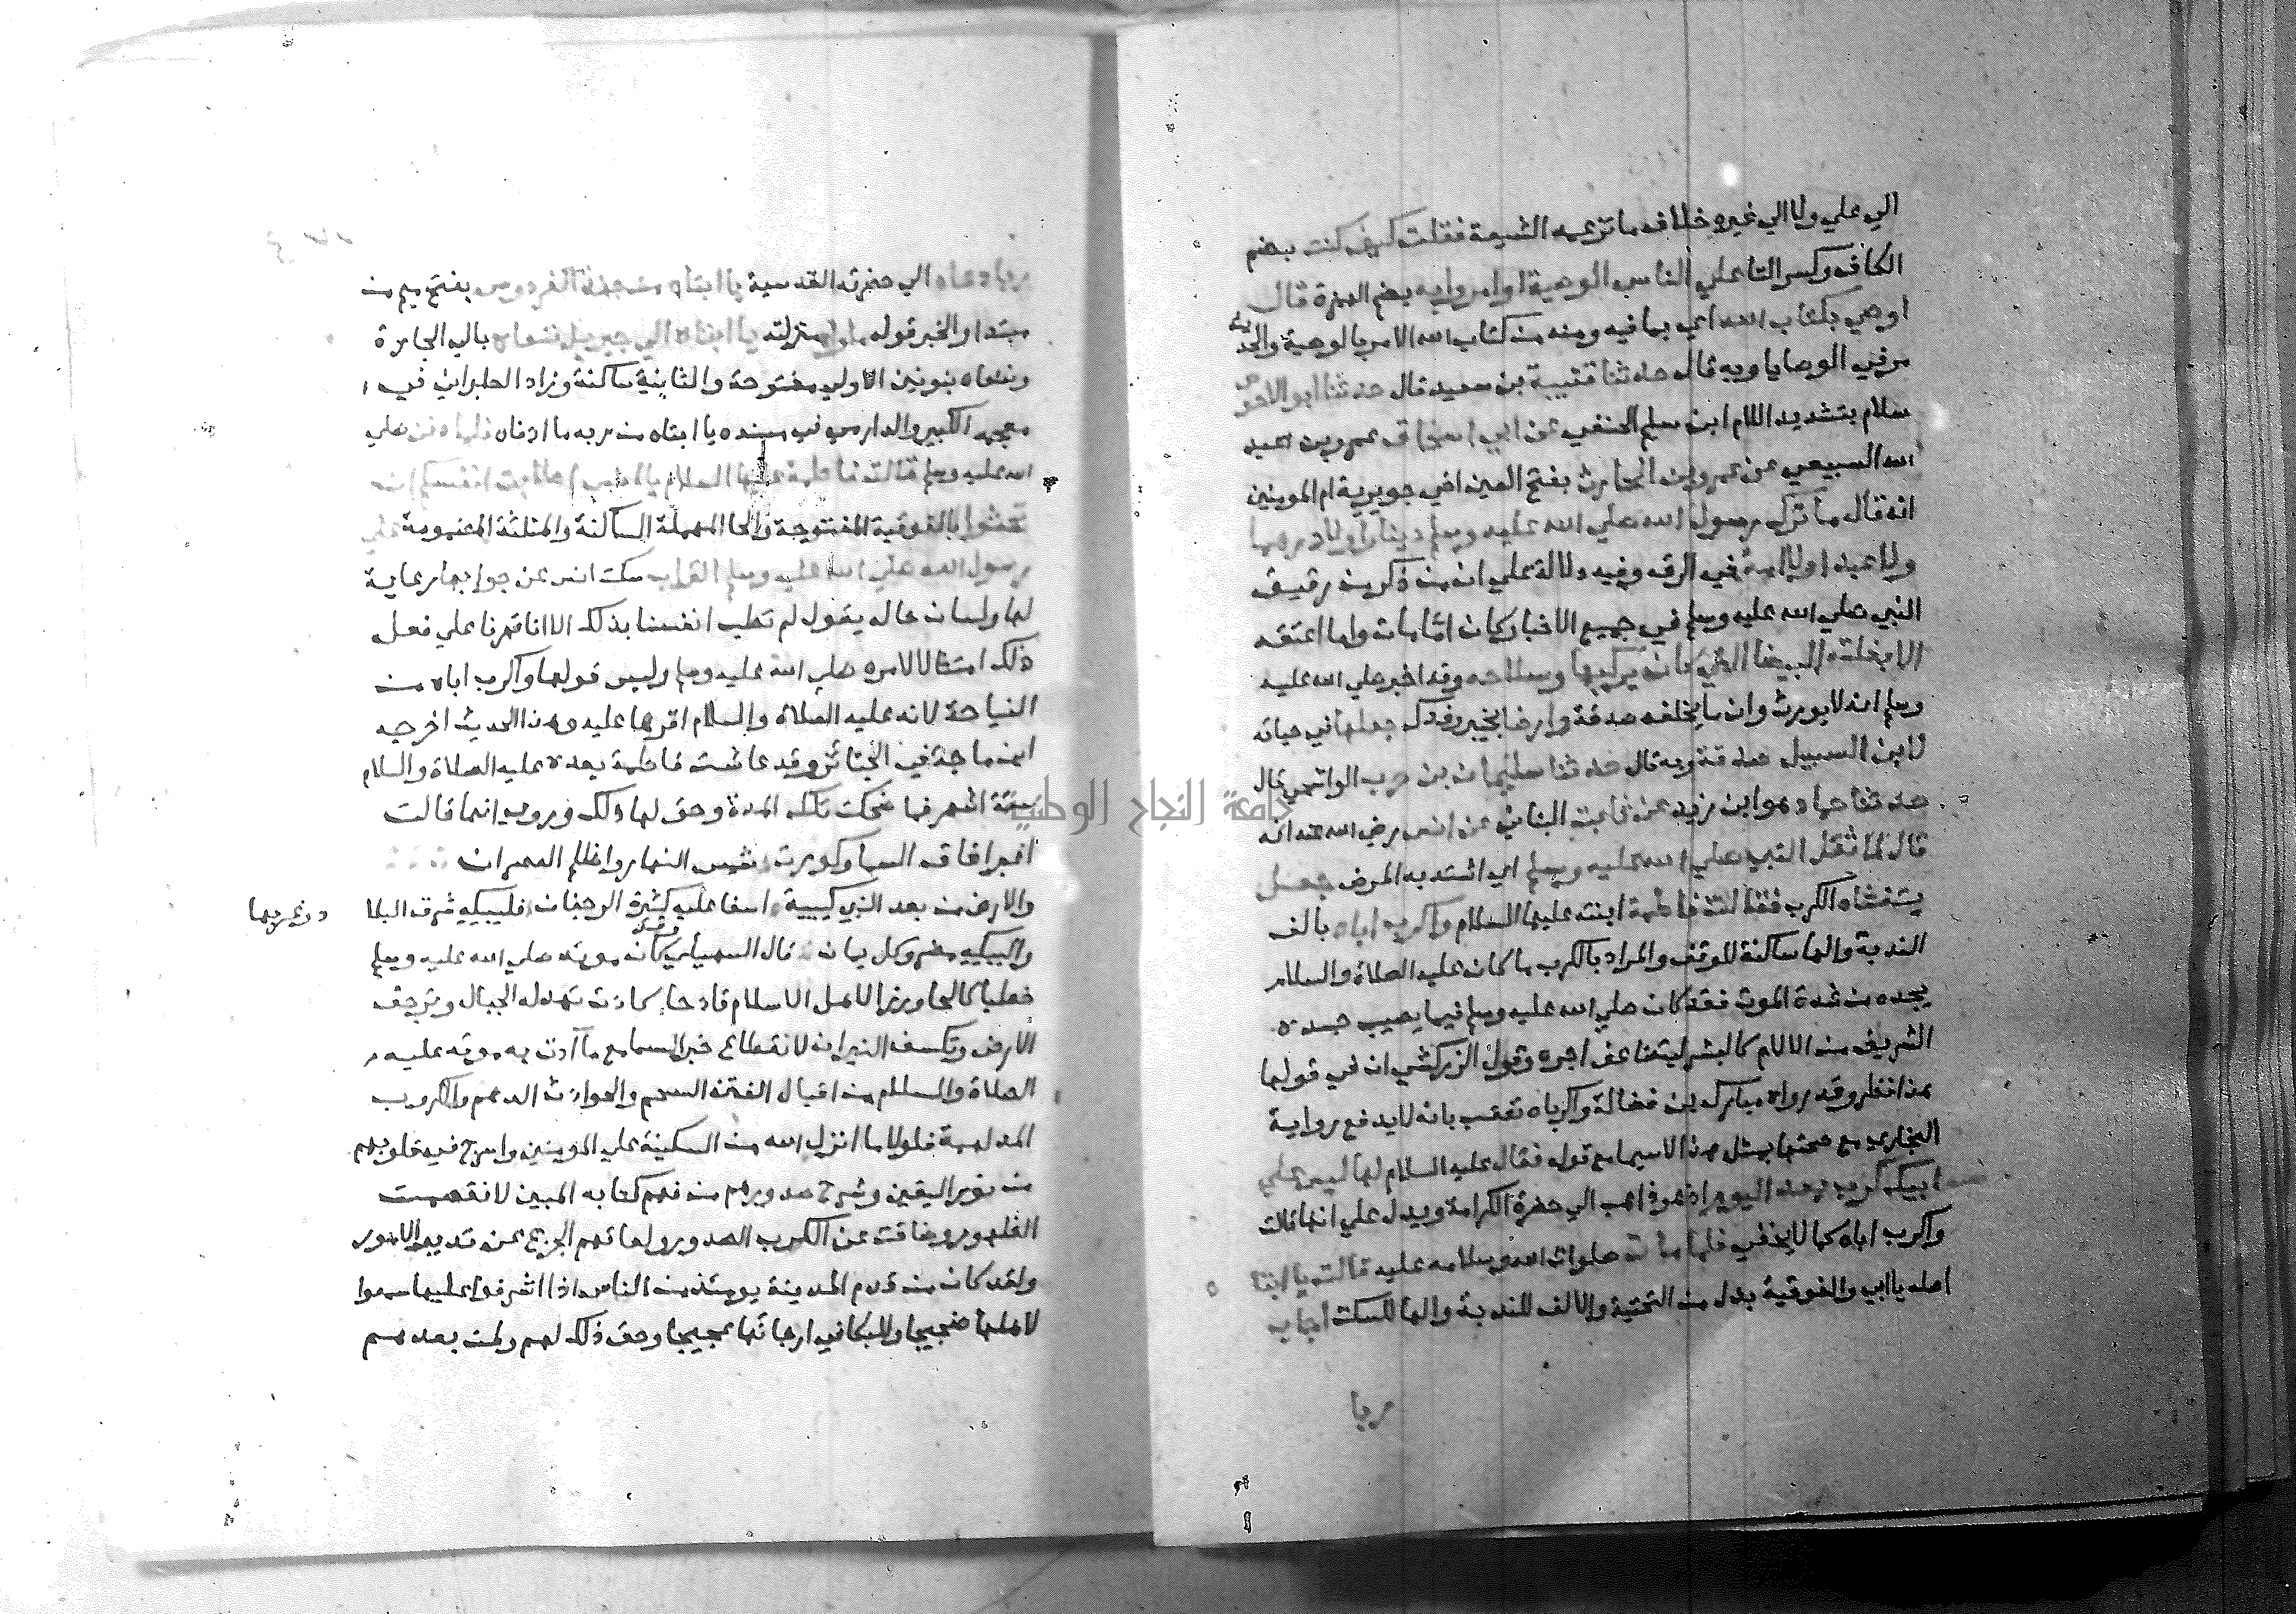 الي علي ولا الي غيره خلاف ما تزعمه الشيعة فقلت كيف كتب بضم
الكاف وكسر التا علي الناس الوصية او امروا به بضم الهمزة قال
اوصي بكتاب الله اي بما فيه ومنه من كتاب الله الامر بالوصية والحديث
مر في الوصايا وبه قال حدثنا قتيبة بن سعيد قال حدثنا ابو الاحوص
سلام بتشديد اللام ابن سليم الحنفي عن ابي اسحاق عمرو بن عبد
الله السبيعي عن عمرو بن الحارث بفتح العين اخي جويرية ام المومنين
انه قال ما ترك رسول الله صلي الله عليه وسلم دينارا ولا درهما
ولا عبدا ولا امة في الرق وفيه دلالة علي ان من ذكر من رقيق
النبي صلي الله عليه وسلم في جميع الاخبار كان اما مات واما اعتقه
الا بغلته البيضا التي كان يركبها وسلاحه وقد اخبر صلي الله عليه
وسلم انه لا يورث وان ما يخلفه صدقة وارضا بخيبر وفدك جعلها في حياته
لابن السبيل صدقة وبه قال حدثنا سليمان بن حرب الواشحي قال
حدثنا حماد هو ابن زيد عن ثابت البناني عن انس رضي الله عنه انه
قال لما ثقل النبي صلي الله عليه وسلم اي اشتد به المرض جعل
يتغشاه الكرب فقالت فاطمة ابنته عليها السلام واكرب اباه بالف
الندبة والها ساكنة للوقف والمراد بالكرب ما كان عليه الصلاة والسلام
يجده من شدة الموت فقد كان صلي الله عليه وسلم فيما يصيب جسده
الشريف من الالام كالبشر ليتضاعف اجره وقول الزركشي ان في قولها
هذا نظر وقد رواه مبارك بن فضالة واكرباه تعقب بانه لا يدفع رواية
البخاري مع صحتها بمثل هذا لا سيما مع قوله فقال عليه السلام لها ليس علي
ابيك كرب بعد اليوم اذ هو ذاهب الي حضرة الكرامة ويدل علي انها قالت
واكرب اباه كما لا يخفي فلما مات صلوات الله وسلامه عليه قالت يا ابتا
اصله يا ابي والفوقية بدل من التحتية والالف للندبة والها للسكت اجاب
ربا
ربا دعاه الي حضرته القدسية يا ابتاه من جنة الفردوس بفتح ميم من
مبتدا والخبر قوله ماواه منزلته يا ابتاه الي جبريل ننعاه بالي الجارة
وننعاه بنونين الاولي مفتوحة والثانية ساكنة وزاد الطبراني في
معجمه الكبير والدارمي في مسنده يا ابتاه من ربه ما ادناه فلما دفن صلي
الله عليه وسلم قالت فاطمة عليها السلام يا انس اطابت انفسكم ان
تحثوا بالفوقية المفتوحة والحا المهملة الساكنة والمثلثة المضمومة علي
رسول الله صلي الله عليه وسلم التراب سكت انس عن جوابها رعاية
لها ولسان حاله يقول لم تطب انفسنا بذلك الا انا قهرنا علي فعل
ذلك امتثالا لامره صلي الله عليه وسلم وليس قولها واكرب اباه من
النياحة لانه عليه الصلاة والسلام اقرها عليه وهذا الحديث اخرجه
ابن ماجة في الجنائز وقد عاشت فاطمة بعده عليه الصلاة والسلام
ستة اشهر فما ضحكت تلك المدة وحق لها ذلك وروي انها قالت
اغبر افاق السما وكورت شمس النهار واظلم العصران
والارض من بعد النبي كييبة اسفا عليه كثيرة الرجفان فليبكيه شرق البلا
د وغربها
وليبكيه مضر وكل يمان قال السهيلي وقد كان موته صلي الله عليه وسلم
خطبا كالحا ورزا لاهل الاسلام فادحا كادت تهد له الجبال وترجف
الارض وتكسف النيران لانقطاع خبر السما مع ما اذن به موته عليه
الصلاة والسلام من اقبال الفتن السحم والحوادث الدهم والكروب
المدلهمة فلولا ما انزل الله من السكينة علي المومنين واسرج في قلوبهم
من نور اليقين وشرح صدورهم من فهم كتابه المبين لانقصمت
الظهور وضاقت عن الكرب الصدور ولعاقهم الجزع عن تدبير الامور
ولقد كان من قدم المدينة يومئذ من الناس اذا اشرفوا عليها سمعوا
لاهلها ضجيجا وللبكا في ارجائها عجيجا وحق ذلك لهم ولمن بعدهم
جامعة النجاح الوطنية